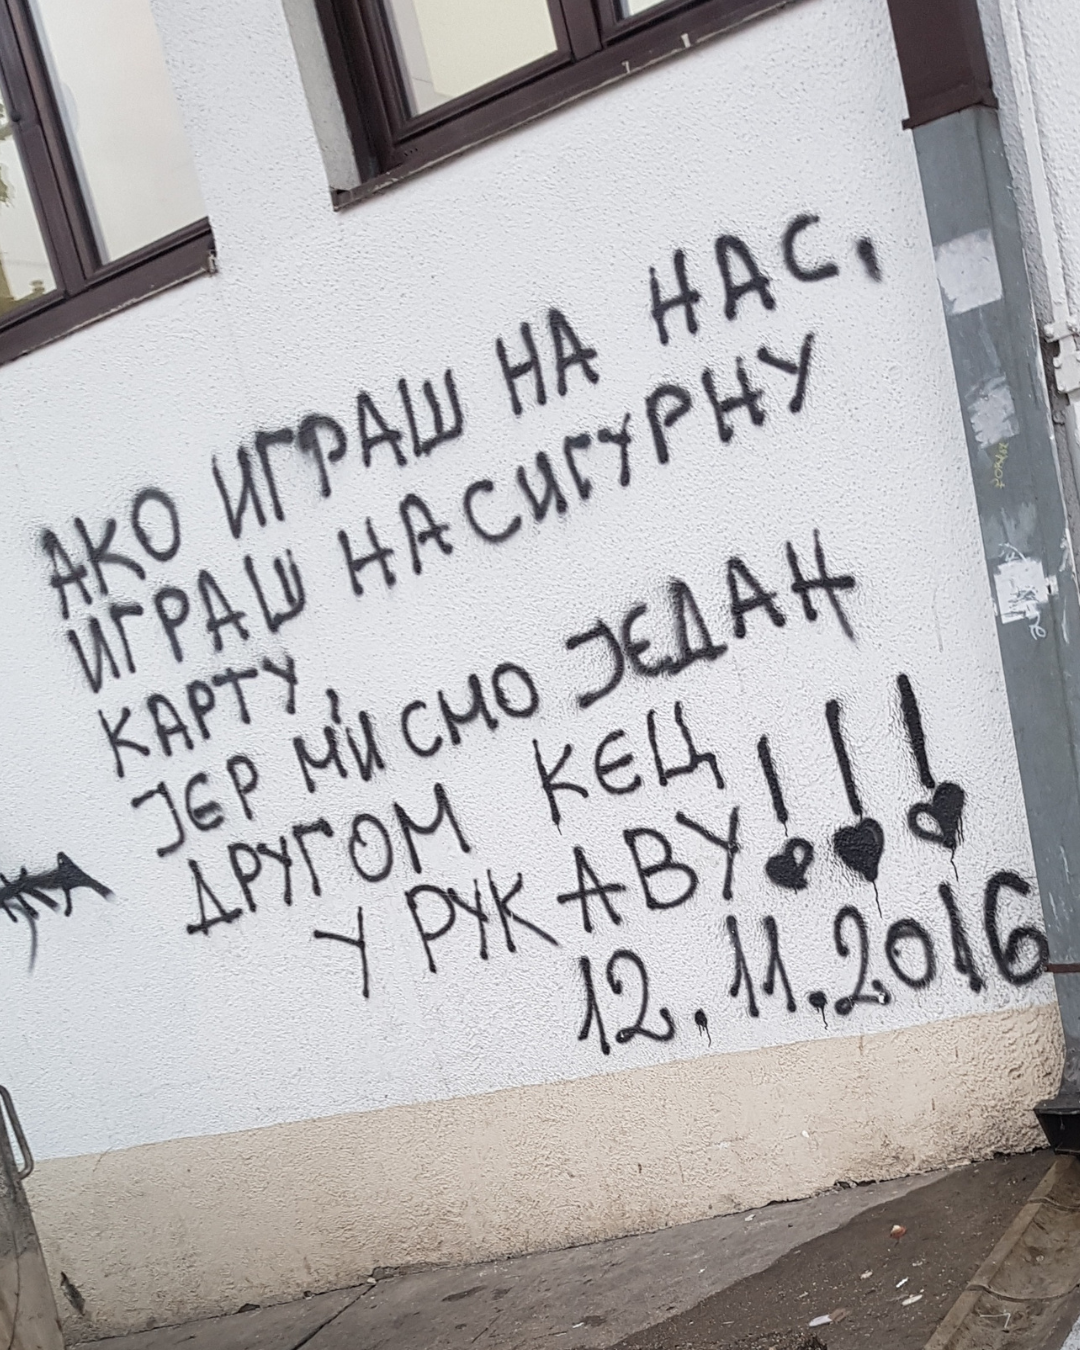 АКО ИГРАШ НА НАС,
ИГРАШ НА СИГУРНУ
КАРТУ,
ЈЕР МИ СМО ЈЕДАН
ДРУГОМ КЕЦ
У РУКАВУ!!!
12.11.2016